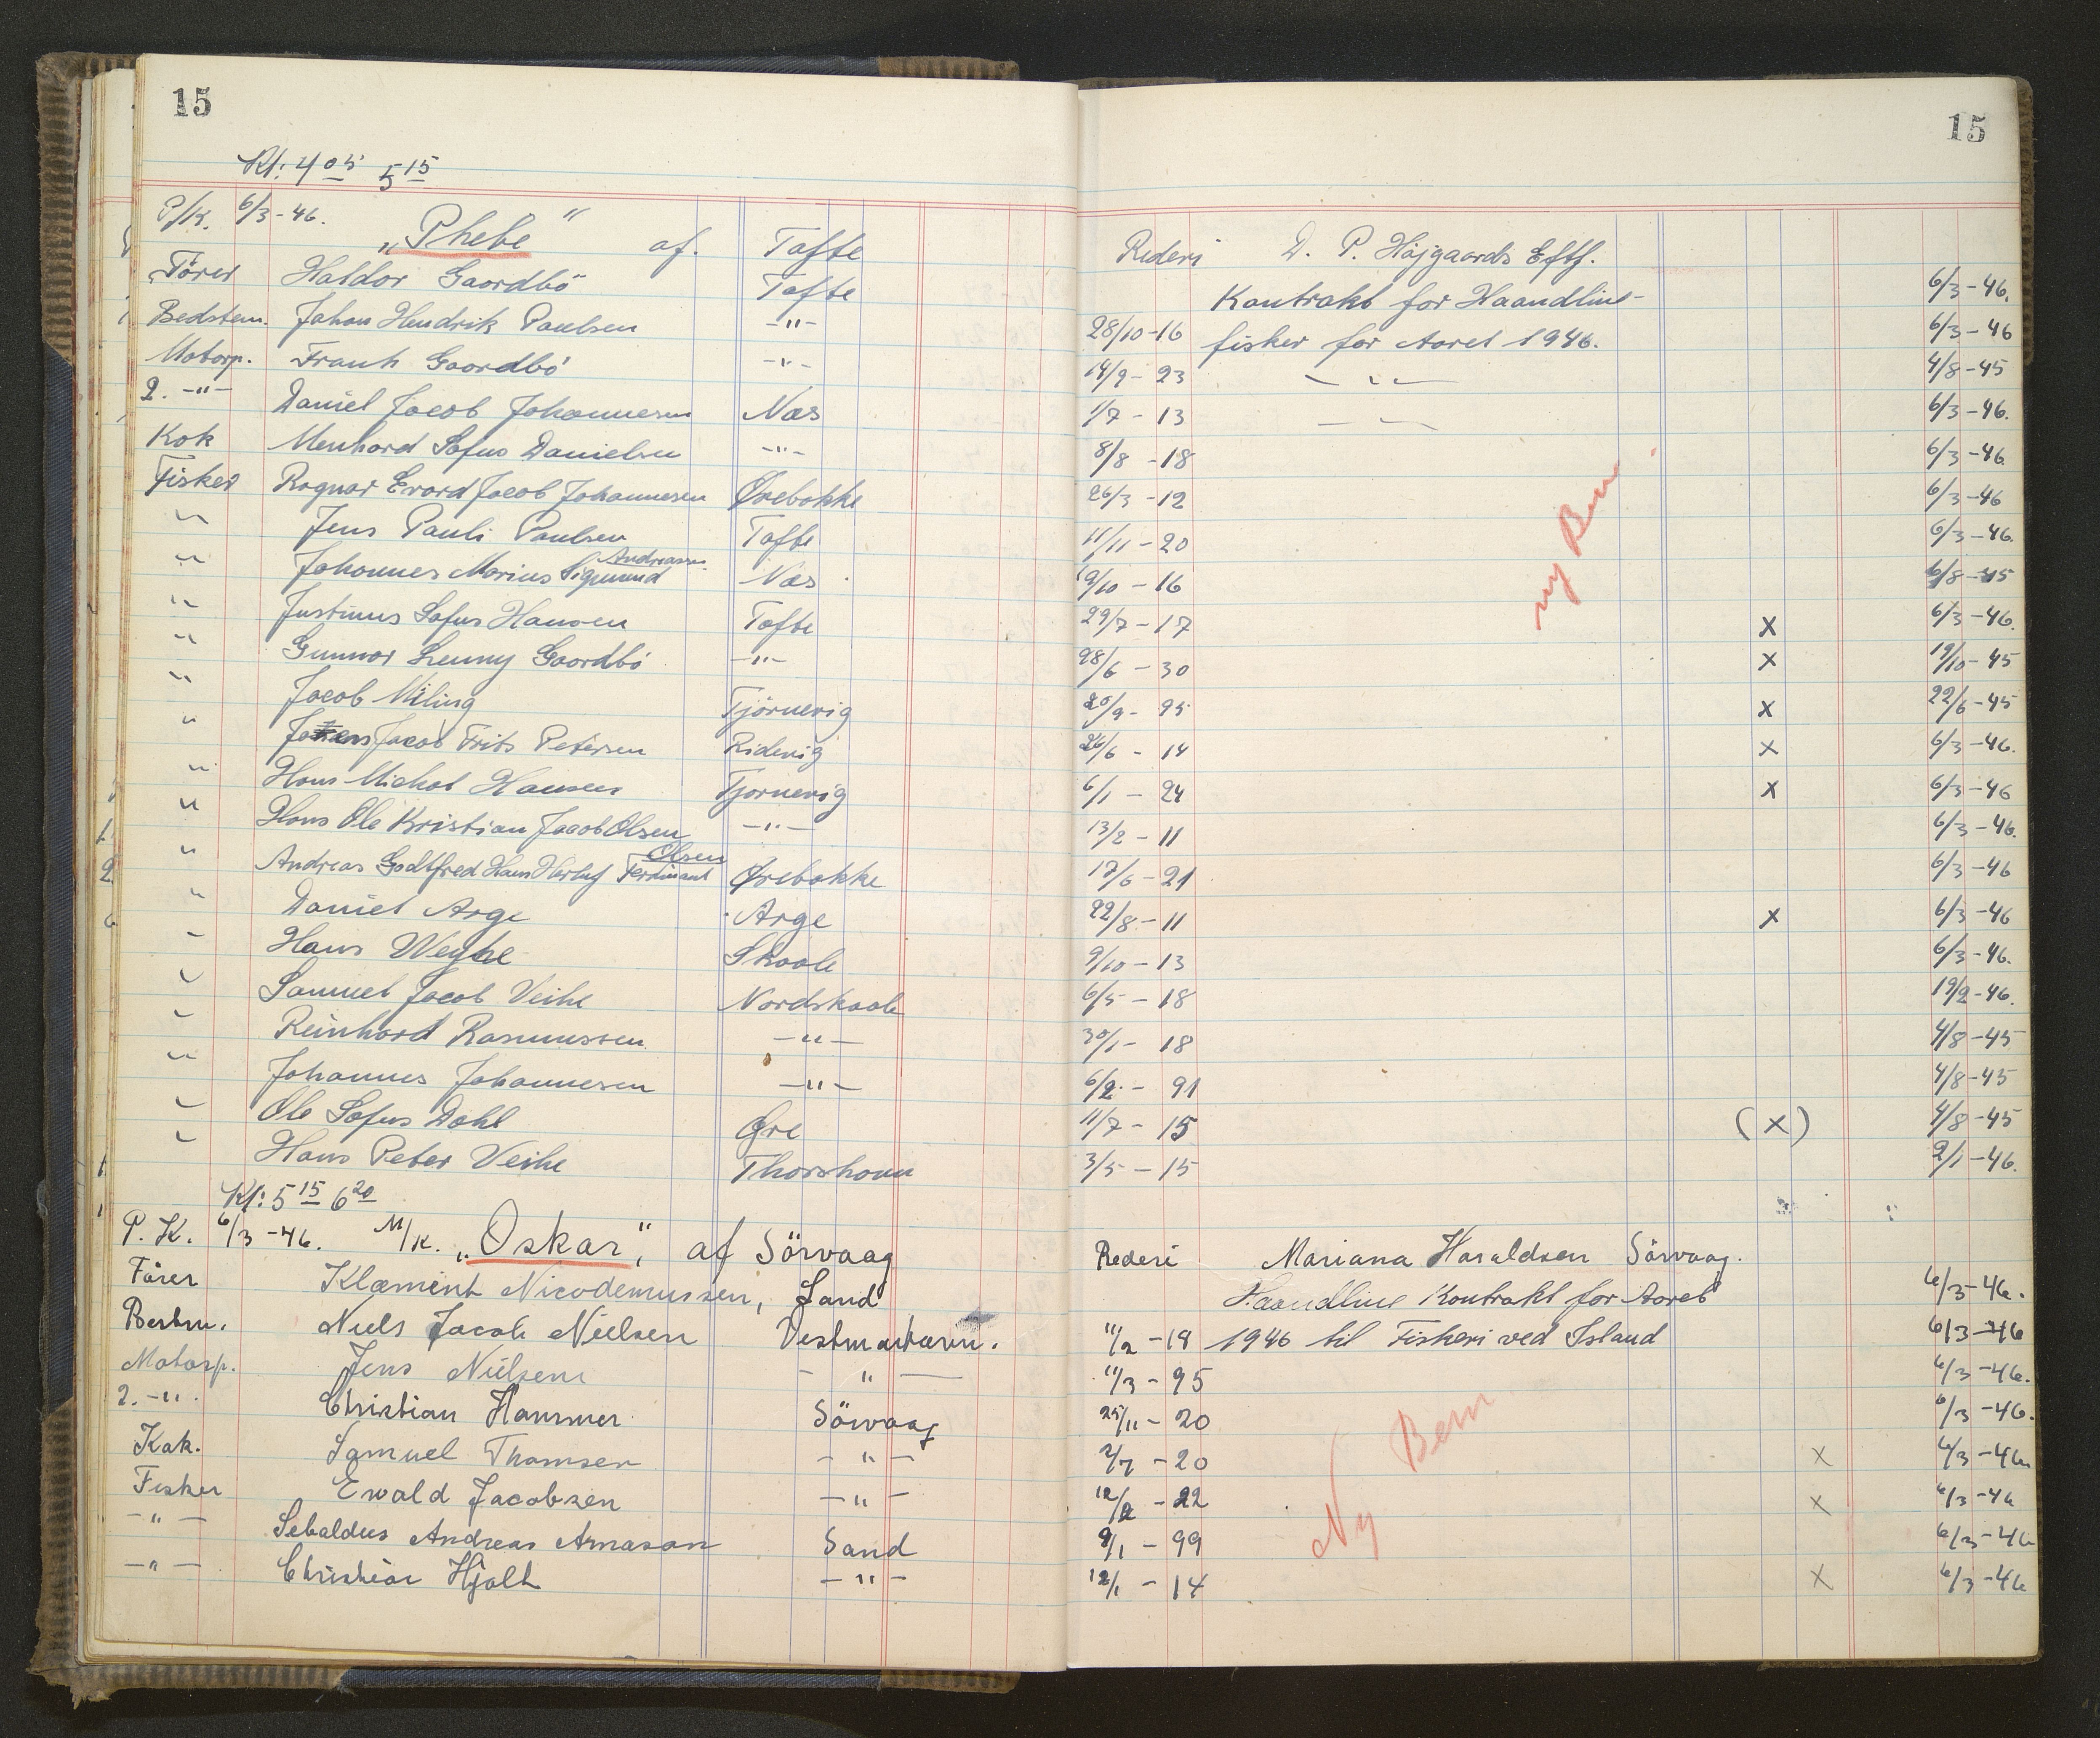 15
15
Kl: 4 05 5 15
P/K. 6/3-46. „Phebe" af. Tofte Rederi D. P. Højgaards Eftf.
Förer Haldor Gaardbö Tofte Kontrakt for Haandline- 6/3-46.
Bedstem. Johan Hendrik Paulsen -"- 28/10-16 fisker for Aaret 1946. 6/3-46
Motorp. Frank Gaardbö -"- 14/9-23 -"- 4/8-45
2. -"- Daniel Jacob Johannesen Næs 1/7-13 -"- 6/3-46.
Kok Menhard Sofus Danielsen -"- 8/8-18 6/3-46.
Fisker Ragnar Evard Jacob Johannesen Ørebakke 26/3-12 6/3-46
" Jens Pauli Paulsen Tofte 11/11-20 ny Bem 6/3-46.
" Johannes Marius Sigmund Andreasen Næs 19/10-16 4/8-45
" Justinus Sofus Hansen Tofte 29/7-17 x 6/3-46.
" Gunnar Lenny Gaardbö -"- 28/6-30 x 19/10-45
" Jacob Miling Tjörnevig 20/9-95 x 22/6-45
" Jacob Frits Petersen Ridevig 24/6-14 x 6/3-46.
" Hans Michal Hansen Tjörnevig 6/1-24 x 6/3-46
" Hans Ole Kristian Jacob Olsen -"- 13/2-11 6/3-46.
" Andreas Godtfred Hans Herluf Ferdinant Olsen Ørebakke 17/6-21 6/3-46
" Daniel Arge Arge 22/8-11 x 6/3-46
" Hans Weyhe Skaale 9/10-13 6/3-46.
" Samuel Jacob Veihe Nordskaale 6/5-18 19/2-46.
" Reinhard Rasmussen -"- 30/1-18 4/8-45
" Johannes Johannesen -"- 6/2-91 4/8-45
" Ole Sofus Dahl Øre 11/7-15 (x) 4/8-45
" Hans Peter Veihe Thorshavn 3/5-15 2/1-46.
Kl: 5 15 6 20
P. K. 6/3-46. M/K. „Oskar", af Sörvaag Rederi Mariana Haraldsen Sörvaag.
Förer Klæmint Nicodemussen, Sand Haandline Kontrakt for Aaret 6/3-46.
Bestm. Niels Jacob Nielsen Vestmanhavn. 11/2-19 1946 til Fiskeri ved Island 6/3-46
Motorp. Jens Nielsen - " - 11/3-95 6/3-46.
2. -". Christian Hammer Sörvaag 25/11-20 Ny Bem 6/3-46.
Kok. Samuel Thomsen - " - 2/7-20 x 6/3-46
Fisker Ewald Jacobsen - " - 12/2-22 x 6/3-46
- " - Sebaldus Andreas Arnason Sand 9/1-99 6/3-46
- " - Christian Hjalt - " - 12/1-14 x 6/3-46